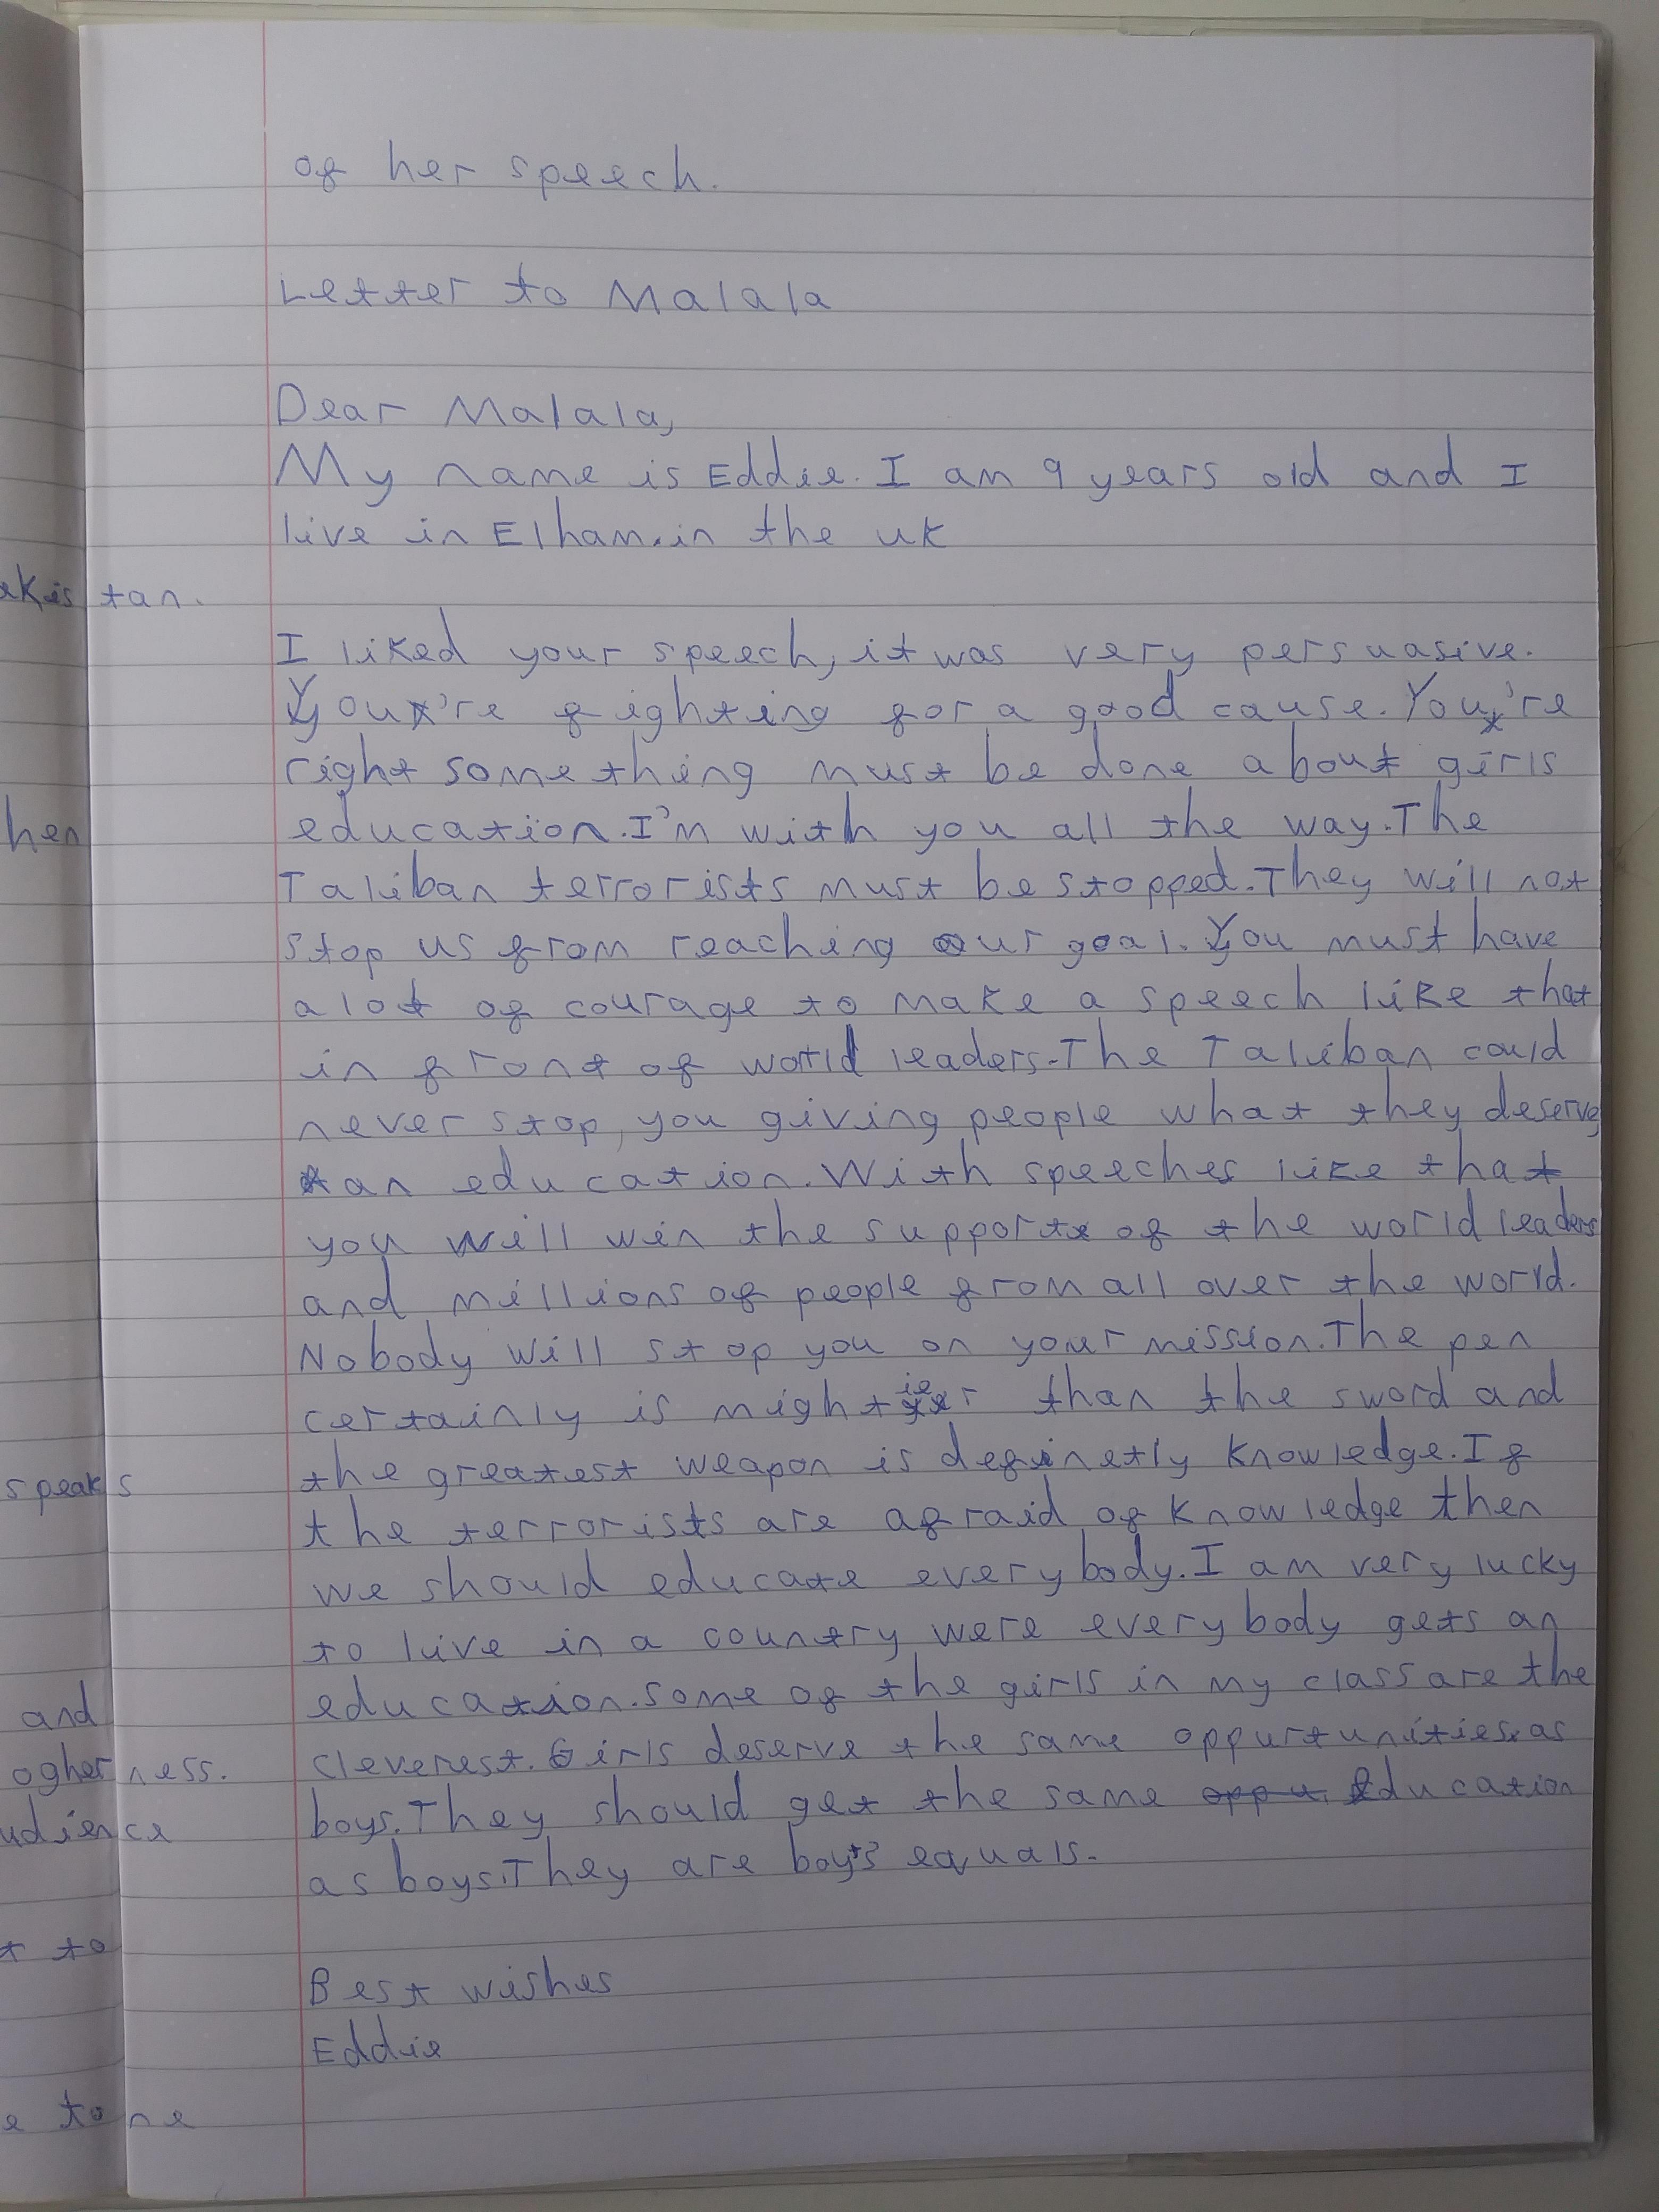 of her speech.
Letter to Malala
Dear Malala,
My name is Eddie. I am 9 years old and I
live in Elham.in the uk
tan.
I liked your speech, it was very persuasive.
You're fighting for a good cause. You're
right something must be done about girls
hen
education. I'm with you all the way. The
Taliban terrorists must be stopped. They will not
stop us from reaching our goal. You must have
a lot of courage to make a speech like that
in front of world leaders. The Taliban could
never stop, you giving people what they deserve
an education. With speeches like that
you will win the support of the world leaders
and millions of people from all over the world.
Nobody will stop you on your mission. The pen
certainly is mightier than the sword and
speaks
the greatest weapon is definetly knowledge. If
the terrorists are afraid of knowledge then
we should educate everybody. I am very lucky
to live in a country were everybody gets an
and
education. Some of the girls in my class are the
ogherness.
cleverest. Girls deserve the same oppurtunities as
udience
boys. They should get the same education
as boys. They are boys' equals.
t to
Best wishes
Eddie
e tone